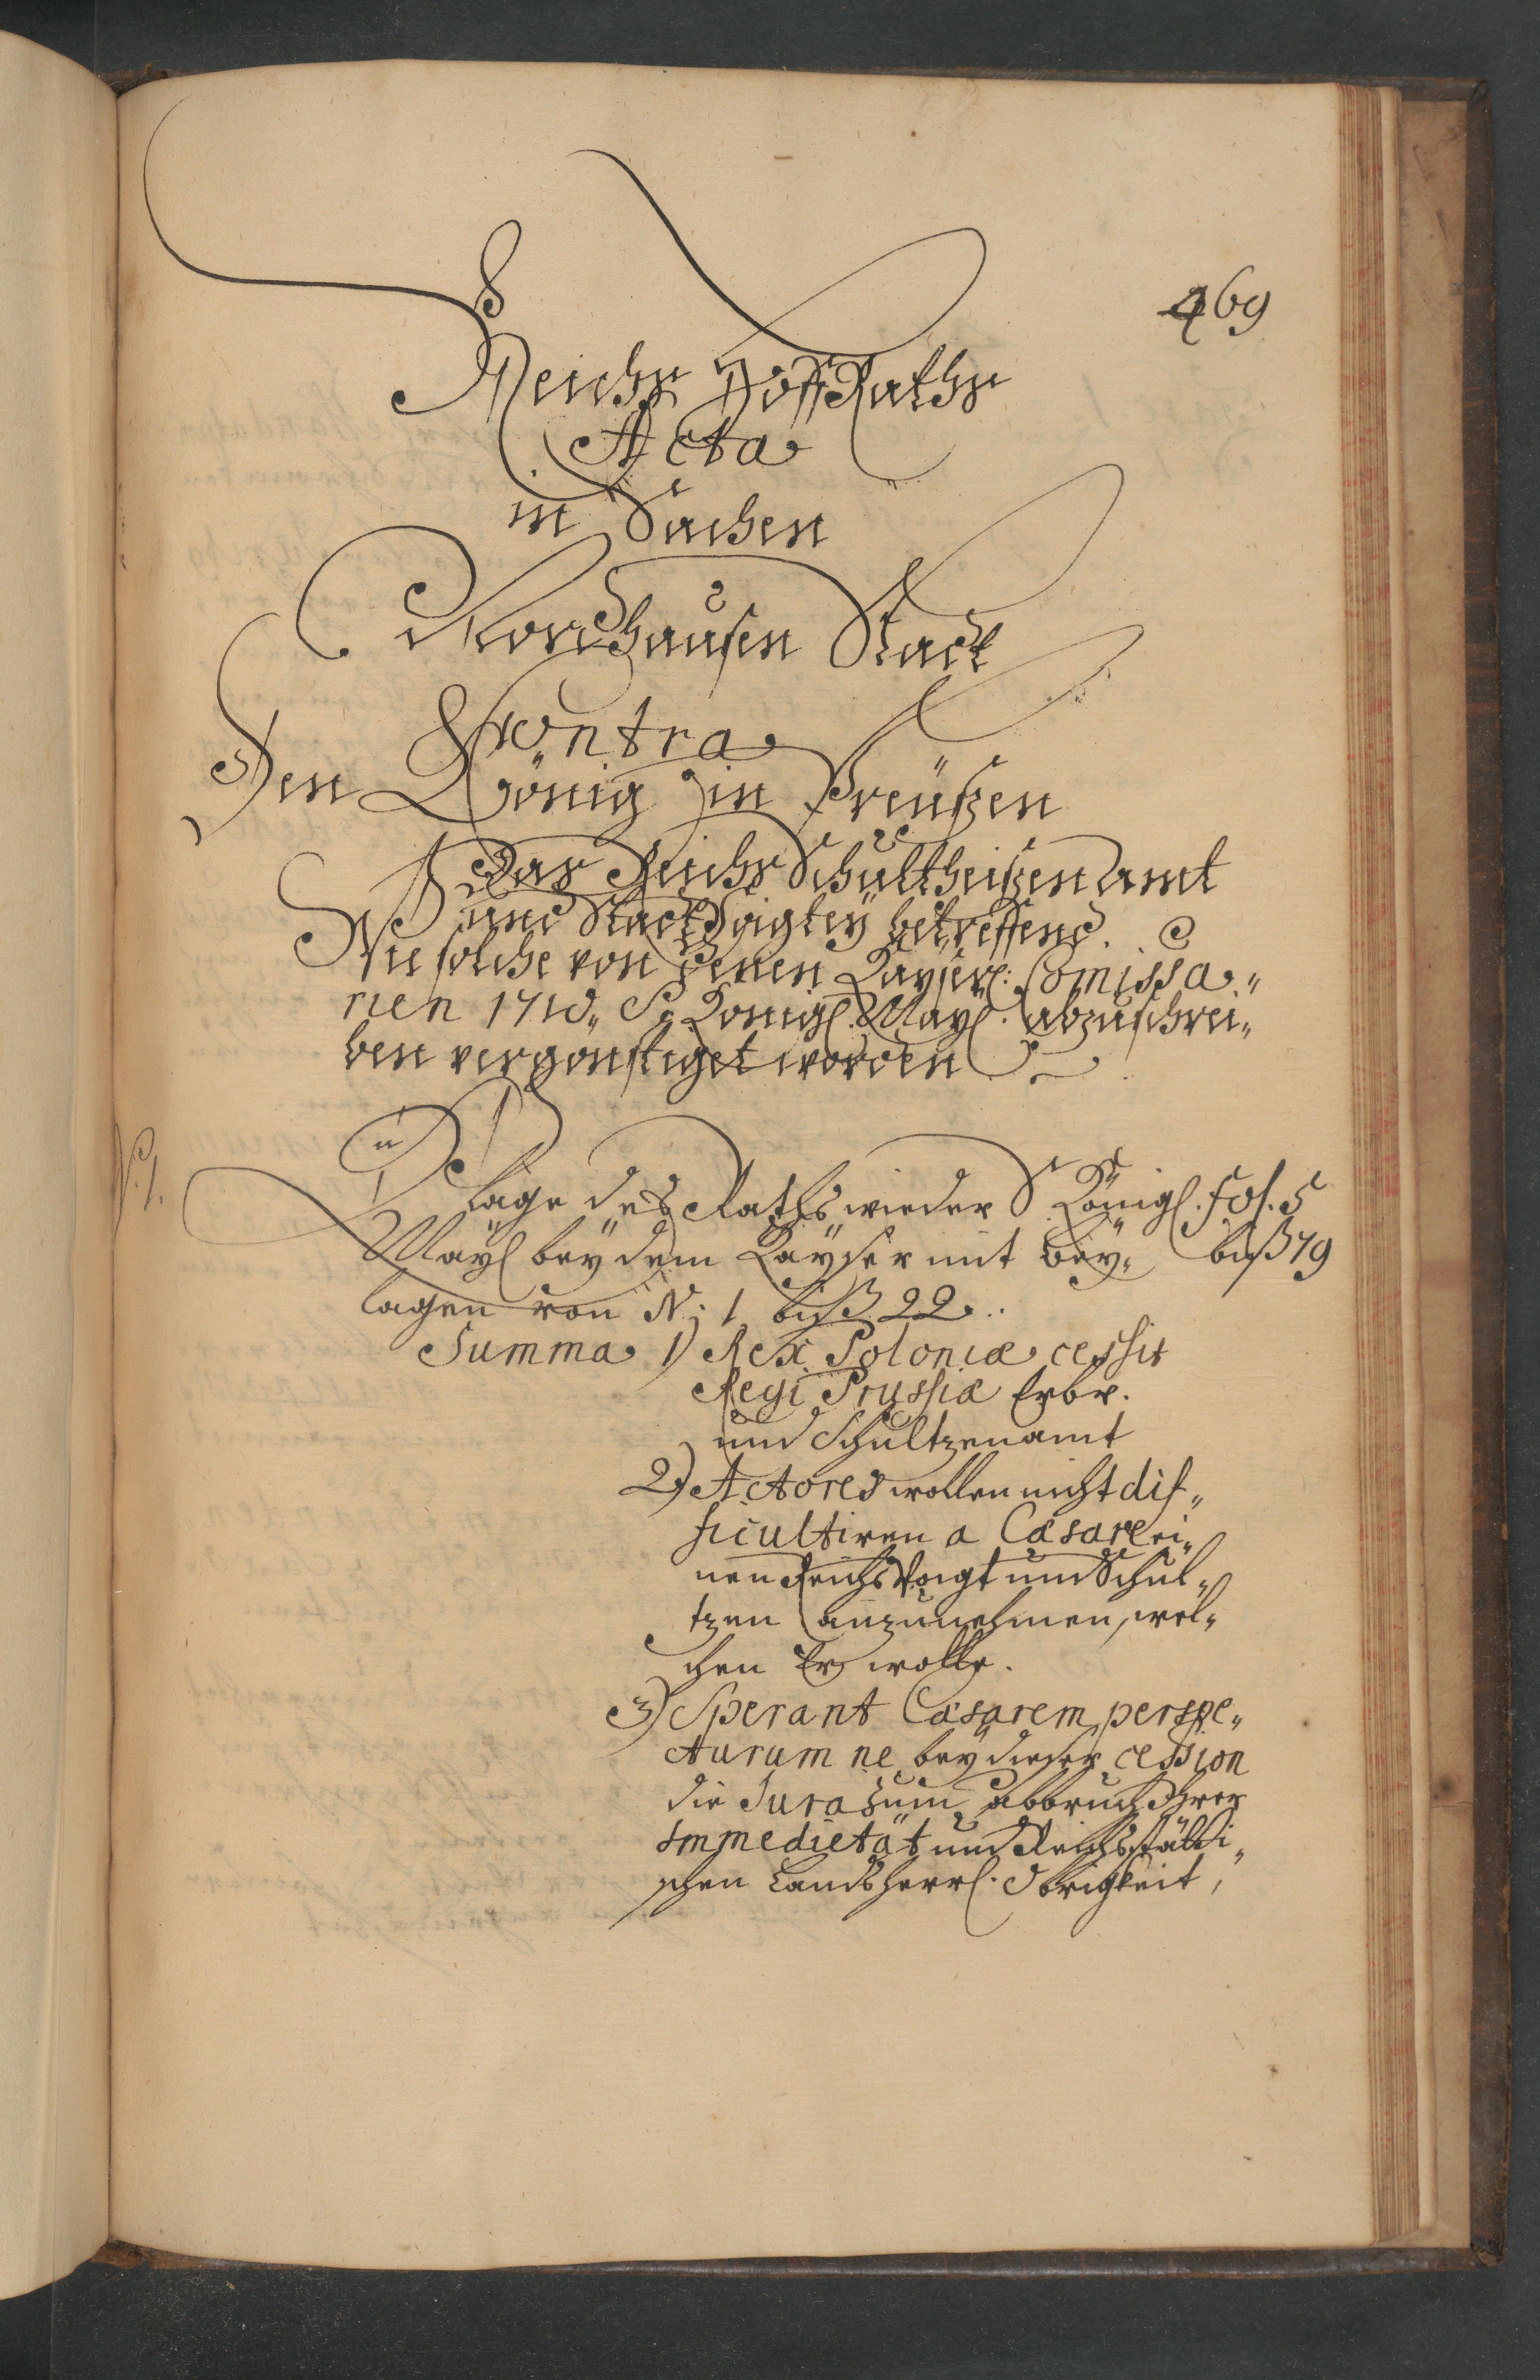 469
Reichs Hoff Raths
Acta
in Sachen
Nordhausen Stadt
Contra
Den König in Preußen
Das Reichs Schultheißen Amt
und Stadt Voigtey betreffend.
Wie solche von denen Kayserl: Comissa„
rien 1710„ Sr Königl. Mayl. abzuschrei„
ben vergönstiget worden
N. 1.
Klage des Raths wieder S. Königl. fol. 5
Mayl bey dem Kayser mit Bey„ biß 79
lagen von N: 1 biß 22.
Summa 1) Rex Poloniæ cessit
Regi Prussiæ Erbv.
und Schultzenamt
2) Actores wollen nicht dif„
ficultiren a Cæsare ei„
nen Reichs Voigt und Schul„
tzen anzunehmen, wel„
chen Er wolle.
3) Sperant Cæsarem perspe„
cturum ne bey dieser cession
die Jura zum abbruch Ihrer
Immedietät und Reichsstädti„
schen Landsherrl. Obrigkeit,